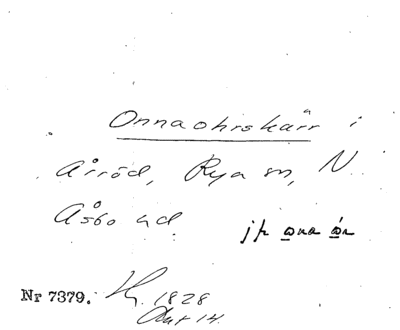 Onnaohrskärr i
Årröd, Rya sn, N.
Åsbo hd. jfr ona
Nr 7379. 1828
Akt 14.